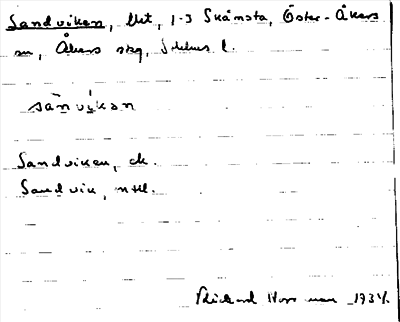 Sandviken, lht, 1-3 Skånsta, Öster-Åkers
sn, Åkers skg, Sthlms l.
sànvíkan
Sandviken, ek.
Sandvik, mtl.
Rickard Hor man 1934.